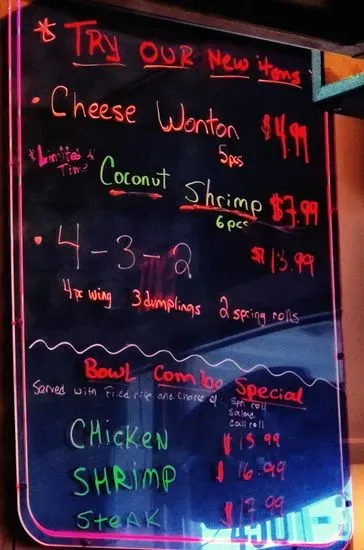 * TRY OUR New items
• Cheese Wonton $4.99
5pcs
*Limited *
Time
Coconut Shrimp $7.99
6pcs
• 4-3-2 $13.99
4pc wing 3 dumplings 2 spring rolls
Bowl Combo Special
Served with Fried rice and choice of: Spr. roll
Salad
Cali roll
CHicken $15.99
SHRIMP $16.99
Steak $17.99